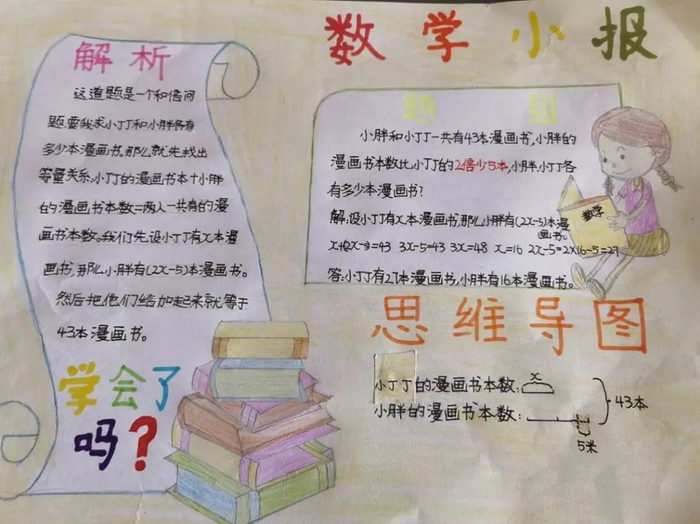 数学小报
解析
这道题是一个和倍问
题,要我求小丁丁和小胖各有
多少本漫画书,那么就先找出
等量关系,小丁丁的漫画书本十小胖
的漫画书本数=两人一共有的漫
画书本数。我们先设小丁丁有x本漫
画书,那么小胖有(2x-5)本漫画书。
然后把他们给加起来就等于
43本漫画书。
学会了
吗?
题目
小胖和小丁丁一共有43本漫画书,小胖的
漫画书本数比小丁丁的2倍少5本,小胖,小丁各
有多少本漫画书?
解:设小丁丁有x本漫画书,那么小胖有(2x-5)本漫
画书。
3x-5=43 3x=48 x=16 2x-5=2×16-5=27
答:小丁丁有27本漫画书,小胖有16本漫画书。
数学
思维导图
小丁丁的漫画书本数:
x
小胖的漫画书本数:
43本
5米